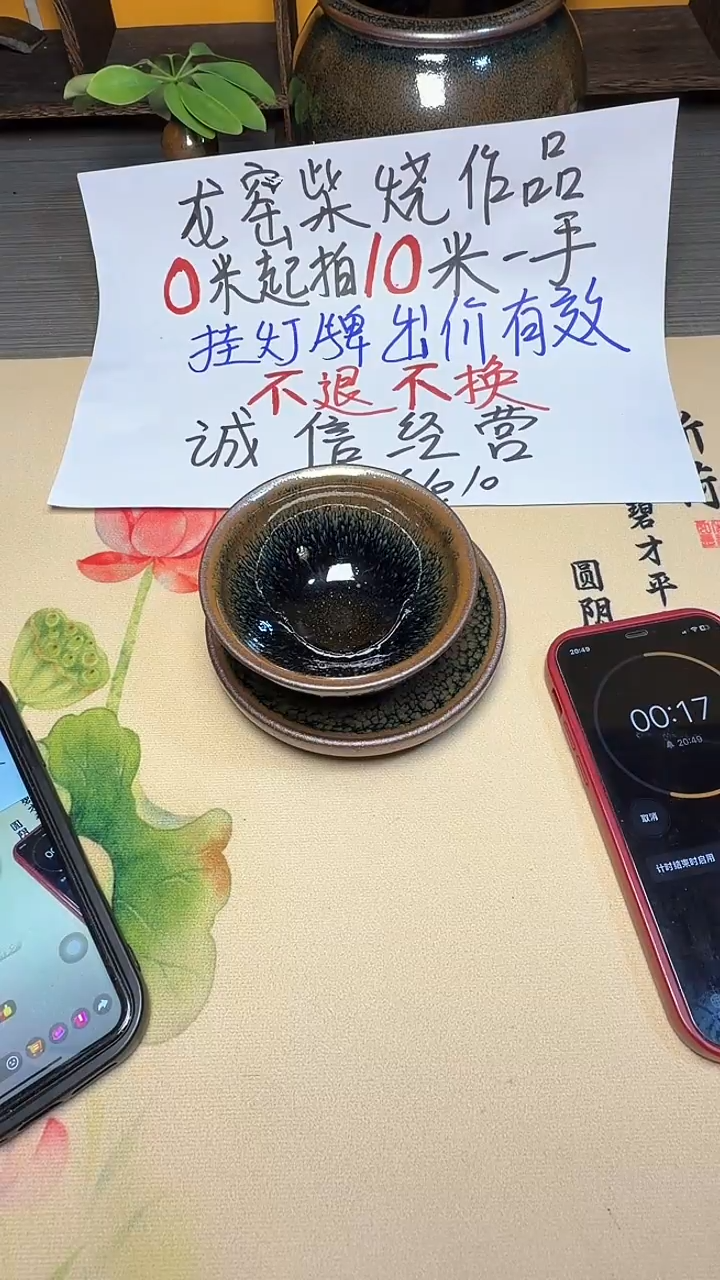 龙窑柴烧作品
0米起拍10米一手
挂灯牌出价有效
不退不换
诚信经营
碧才平
圆阴
20:49
00:17
20:49
取消
计时结束时启用